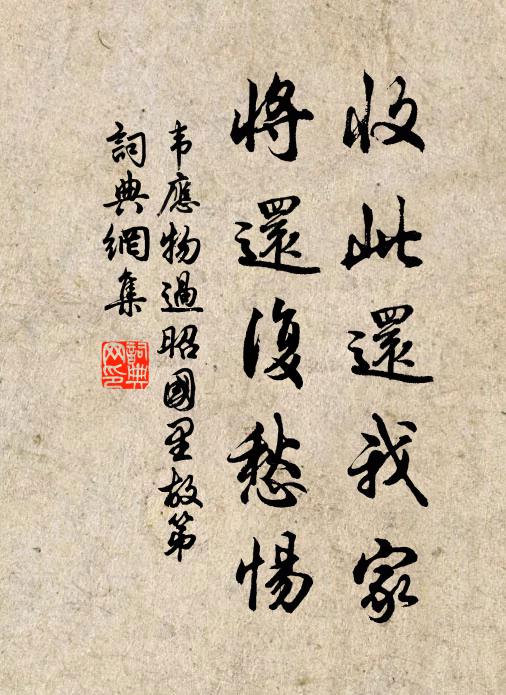 收此還我家
將還復愁惕
韦應物過昭國里故第
詞典網集
詞典网印